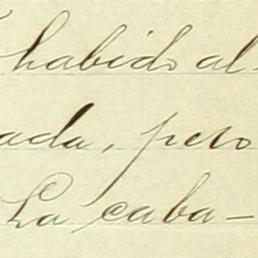 habido al-
ada, pero
La caba-